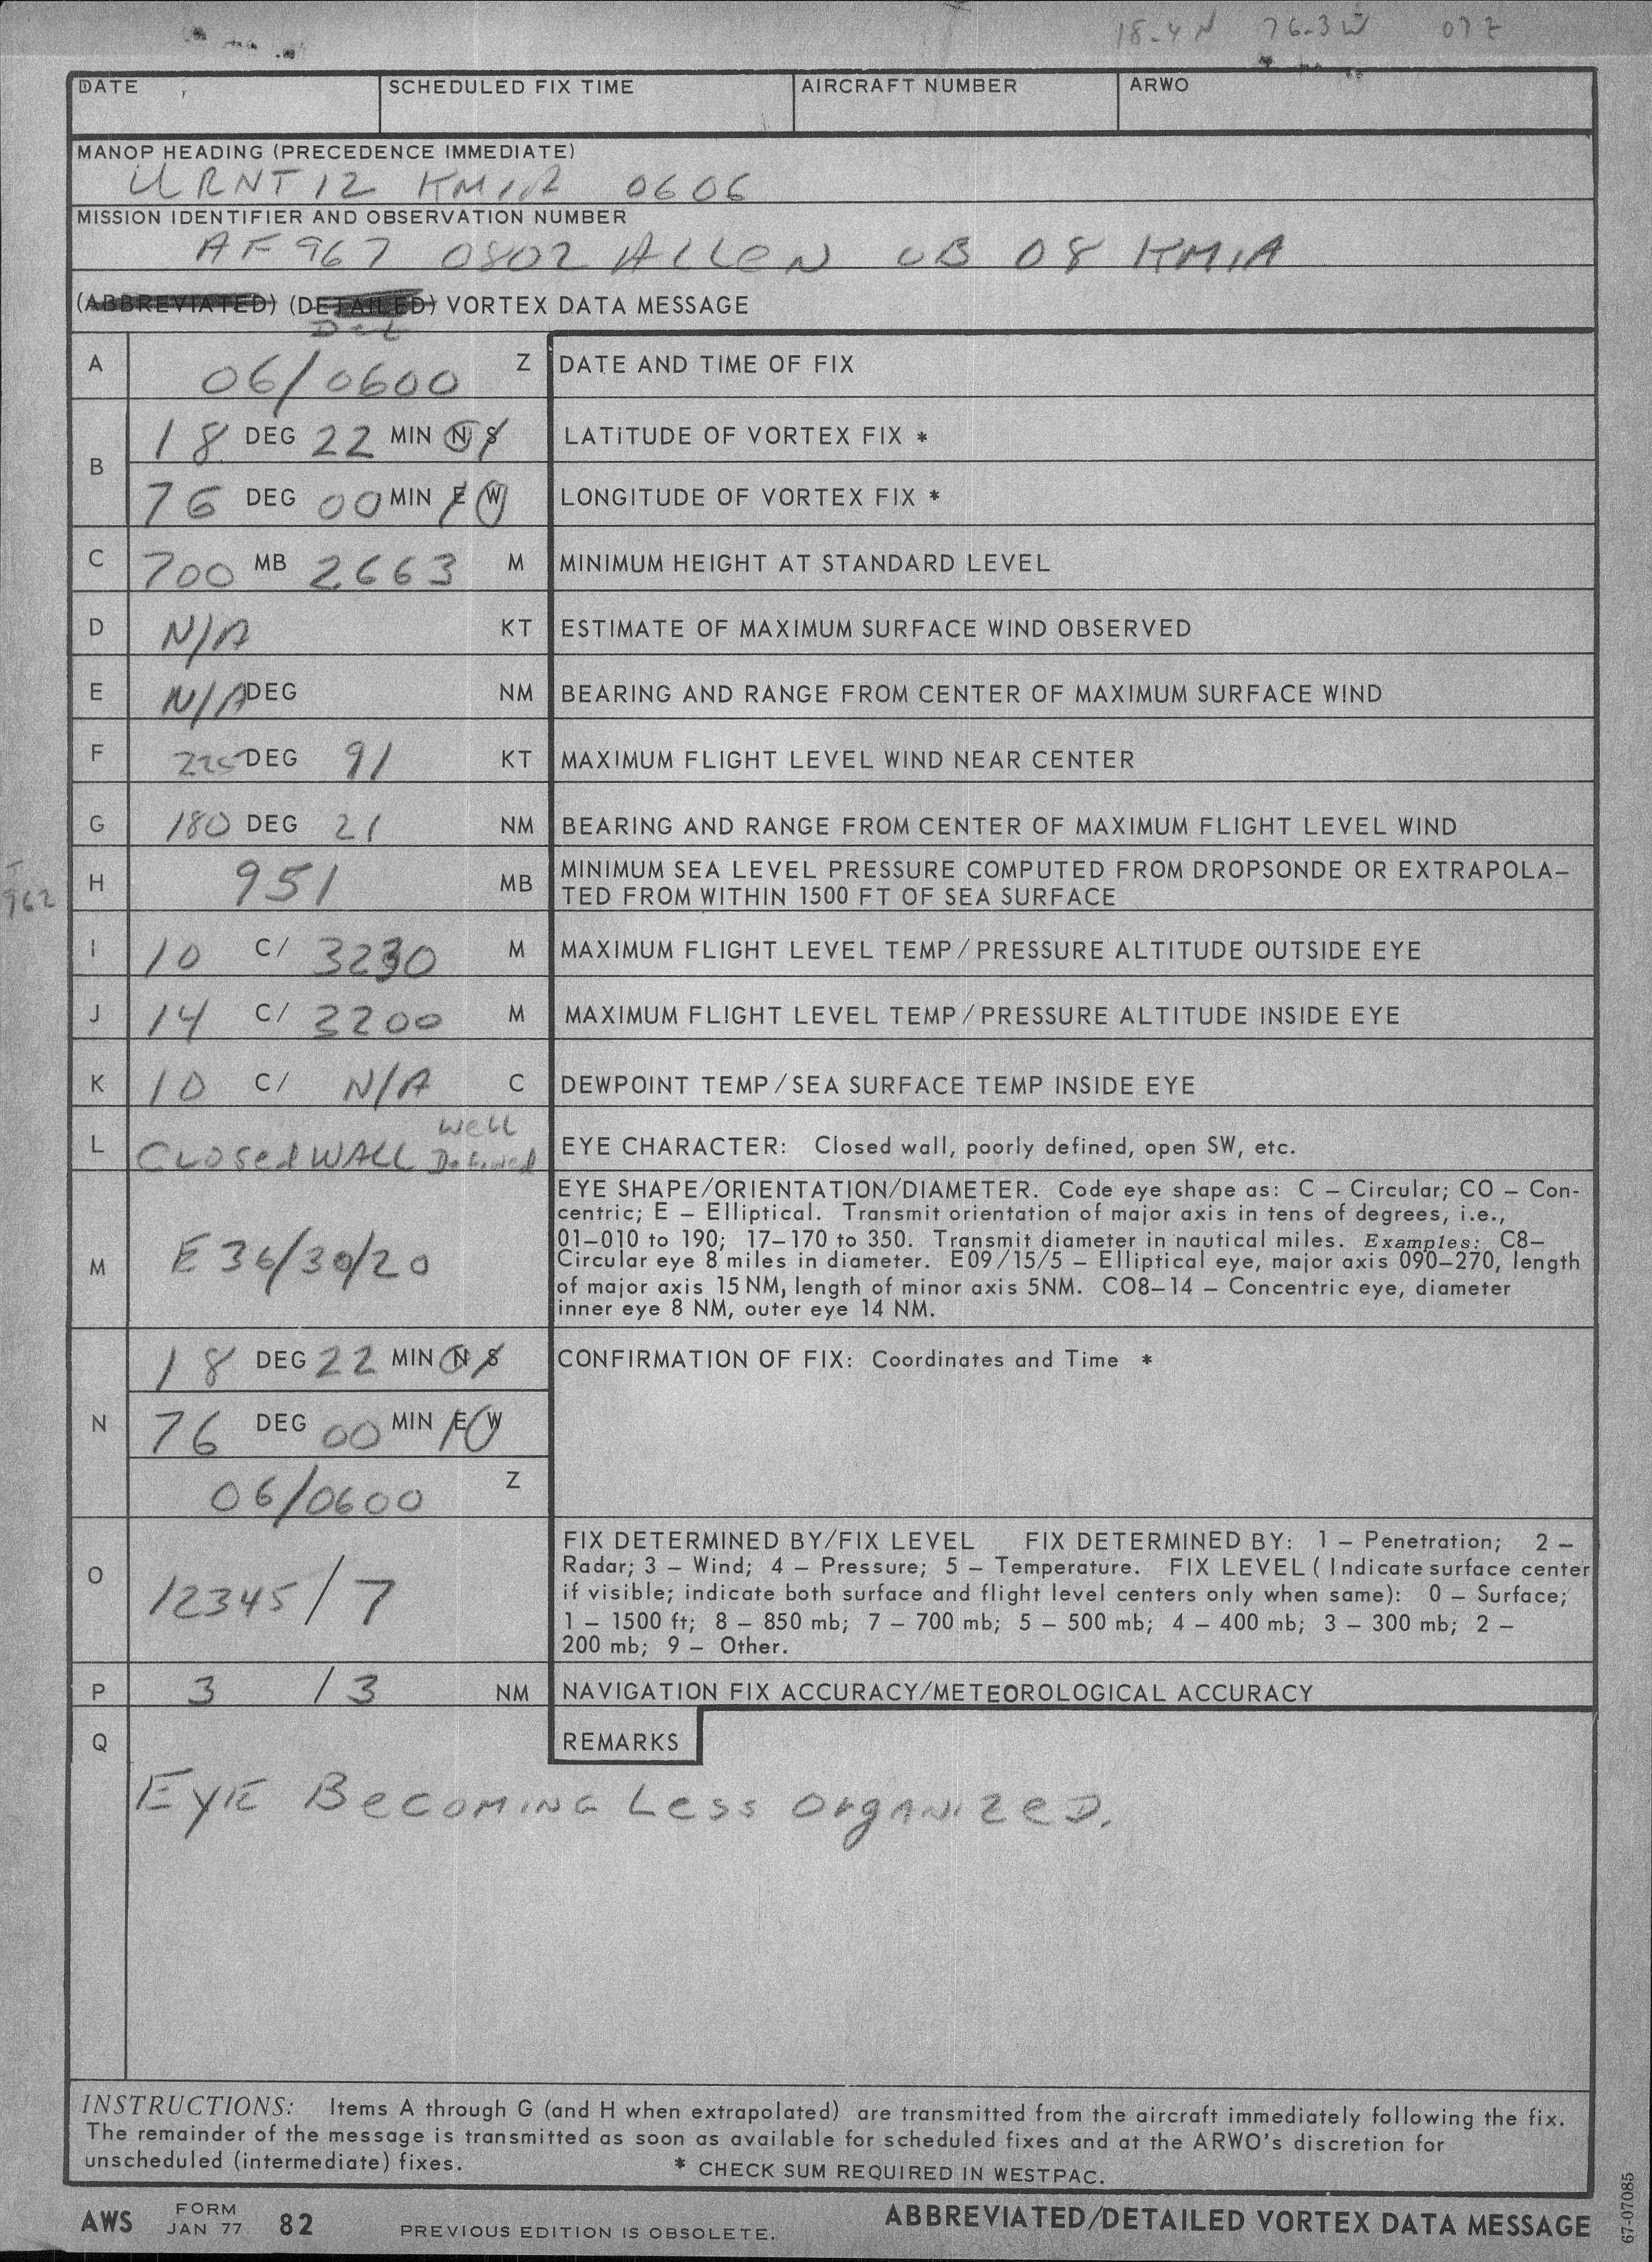 18.4 N 76.3 W 07 Z
DATE SCHEDULED FIX TIME AIRCRAFT NUMBER ARWO
MANOP HEADING (PRECEDENCE IMMEDIATE)
URNT12 KMIA 0606
MISSION IDENTIFIER AND OBSERVATION NUMBER
AF967 0802 ALLEN OB 08 KMIA
(ABBREVIATED) (DETAILED) VORTEX DATA MESSAGE
Det
A 06/0600 Z DATE AND TIME OF FIX
B 18 DEG 22 MIN N S LATITUDE OF VORTEX FIX *
76 DEG 00 MIN E W LONGITUDE OF VORTEX FIX *
C 700 MB 2663 M MINIMUM HEIGHT AT STANDARD LEVEL
D N/A KT ESTIMATE OF MAXIMUM SURFACE WIND OBSERVED
E N/A DEG NM BEARING AND RANGE FROM CENTER OF MAXIMUM SURFACE WIND
F 225 DEG 91 KT MAXIMUM FLIGHT LEVEL WIND NEAR CENTER
G 180 DEG 21 NM BEARING AND RANGE FROM CENTER OF MAXIMUM FLIGHT LEVEL WIND
962 H 951 MB MINIMUM SEA LEVEL PRESSURE COMPUTED FROM DROPSONDE OR EXTRAPOLA-
TED FROM WITHIN 1500 FT OF SEA SURFACE
I 10 C/ 3230 M MAXIMUM FLIGHT LEVEL TEMP/PRESSURE ALTITUDE OUTSIDE EYE
J 14 C/ 3200 M MAXIMUM FLIGHT LEVEL TEMP/PRESSURE ALTITUDE INSIDE EYE
K 10 C/ N/A C DEWPOINT TEMP/SEA SURFACE TEMP INSIDE EYE
L Closed WALL Well Defined EYE CHARACTER: Closed wall, poorly defined, open SW, etc.
M E36/30/20 EYE SHAPE/ORIENTATION/DIAMETER. Code eye shape as: C – Circular; CO – Con-
centric; E – Elliptical. Transmit orientation of major axis in tens of degrees, i.e.,
01–010 to 190; 17–170 to 350. Transmit diameter in nautical miles. Examples: C8–
Circular eye 8 miles in diameter. E09/15/5 – Elliptical eye, major axis 090–270, length
of major axis 15 NM, length of minor axis 5NM. CO8–14 – Concentric eye, diameter
inner eye 8 NM, outer eye 14 NM.
N 18 DEG 22 MIN N S CONFIRMATION OF FIX: Coordinates and Time *
76 DEG 00 MIN E W
06/0600 Z
O 12345/7 FIX DETERMINED BY/FIX LEVEL FIX DETERMINED BY: 1 – Penetration; 2 –
Radar; 3 – Wind; 4 – Pressure; 5 – Temperature. FIX LEVEL (Indicate surface center
if visible; indicate both surface and flight level centers only when same): 0 – Surface;
1 – 1500 ft; 8 – 850 mb; 7 – 700 mb; 5 – 500 mb; 4 – 400 mb; 3 – 300 mb; 2 –
200 mb; 9 – Other.
P 3 / 3 NM NAVIGATION FIX ACCURACY/METEOROLOGICAL ACCURACY
Q REMARKS
EYE Becoming Less Organized.
INSTRUCTIONS: Items A through G (and H when extrapolated) are transmitted from the aircraft immediately following the fix.
The remainder of the message is transmitted as soon as available for scheduled fixes and at the ARWO's discretion for
unscheduled (intermediate) fixes. * CHECK SUM REQUIRED IN WESTPAC.
AWS FORM JAN 77 82 PREVIOUS EDITION IS OBSOLETE. ABBREVIATED/DETAILED VORTEX DATA MESSAGE
67-07085